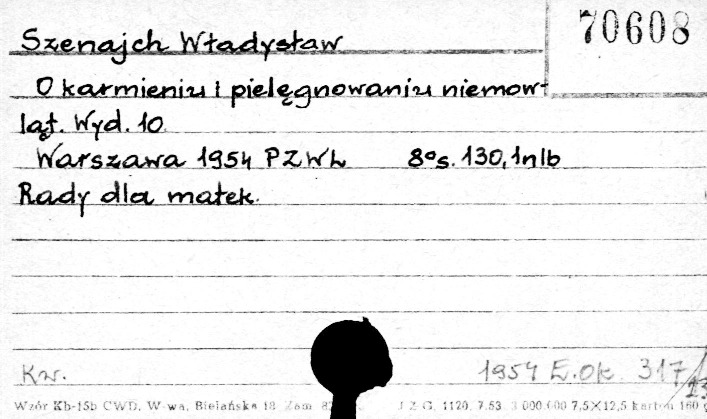 70608
Szenajch Władysław
O karmieniu i pielęgnowaniu niemow-
ląt. Wyd. 10.
Warszawa 1954 PZWL 8° s. 130, 1 nlb
Rady dla matek.
Kw. 1954 E.Ok 317/
Wzór Kb-15b CWD. W-wa, Bielańska 18 Zam J Z G. 1120. 7.53 3 000 000 7,5×12,5 karton 160